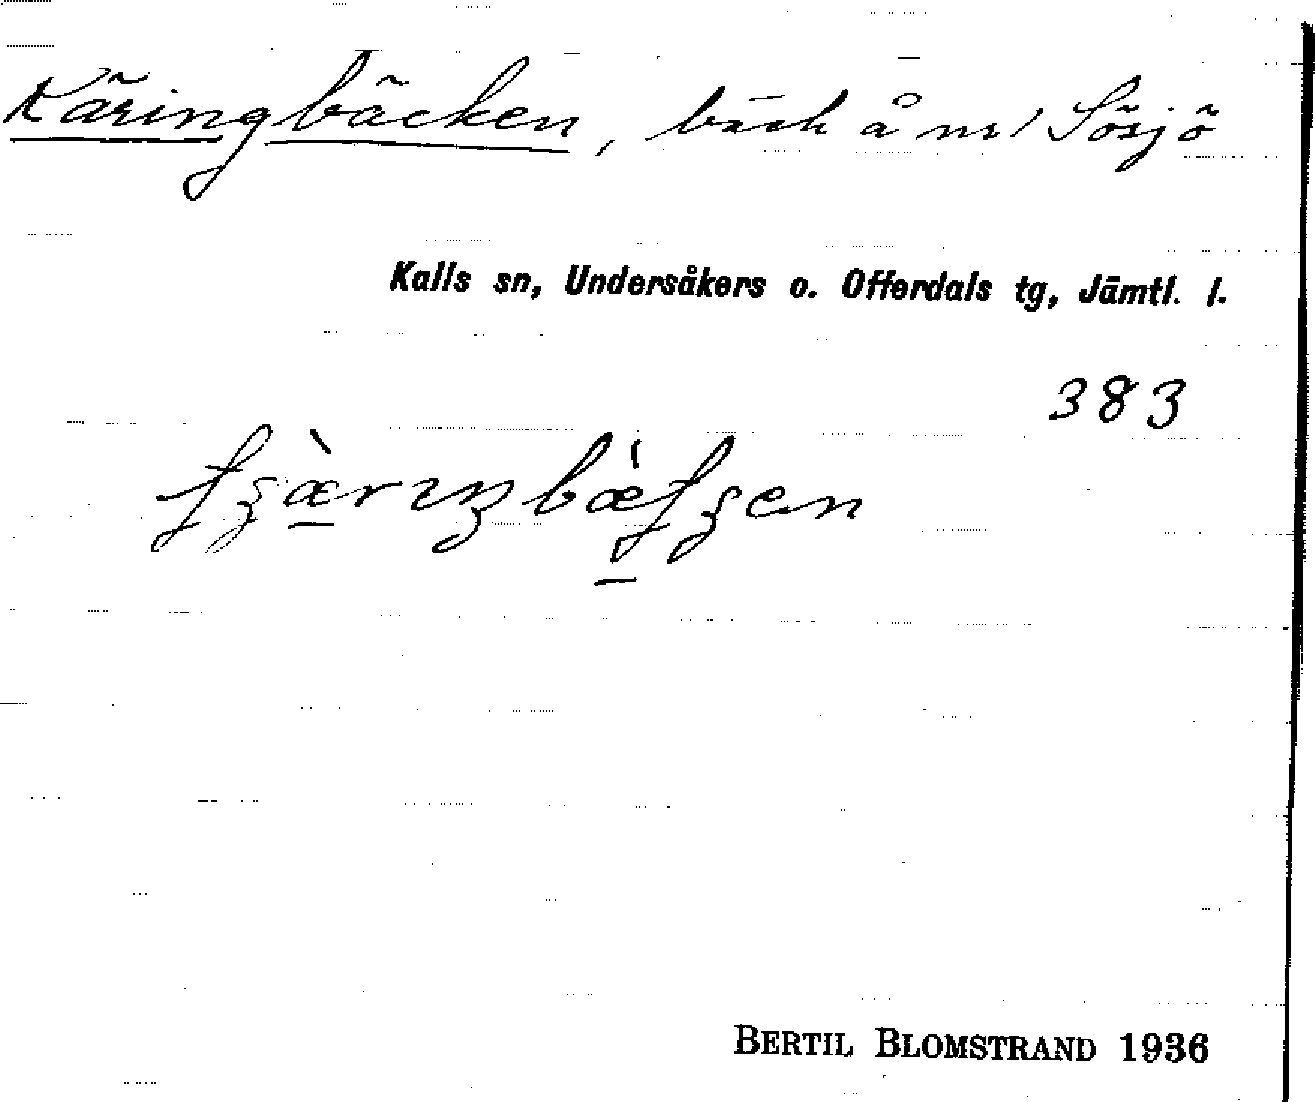 Käringbäcken, bäck å nr/ Sösjö
Kalls sn, Undersåkers o. Offerdals tg, Jämtl. l.
383
BERTIL BLOMSTRAND 1936